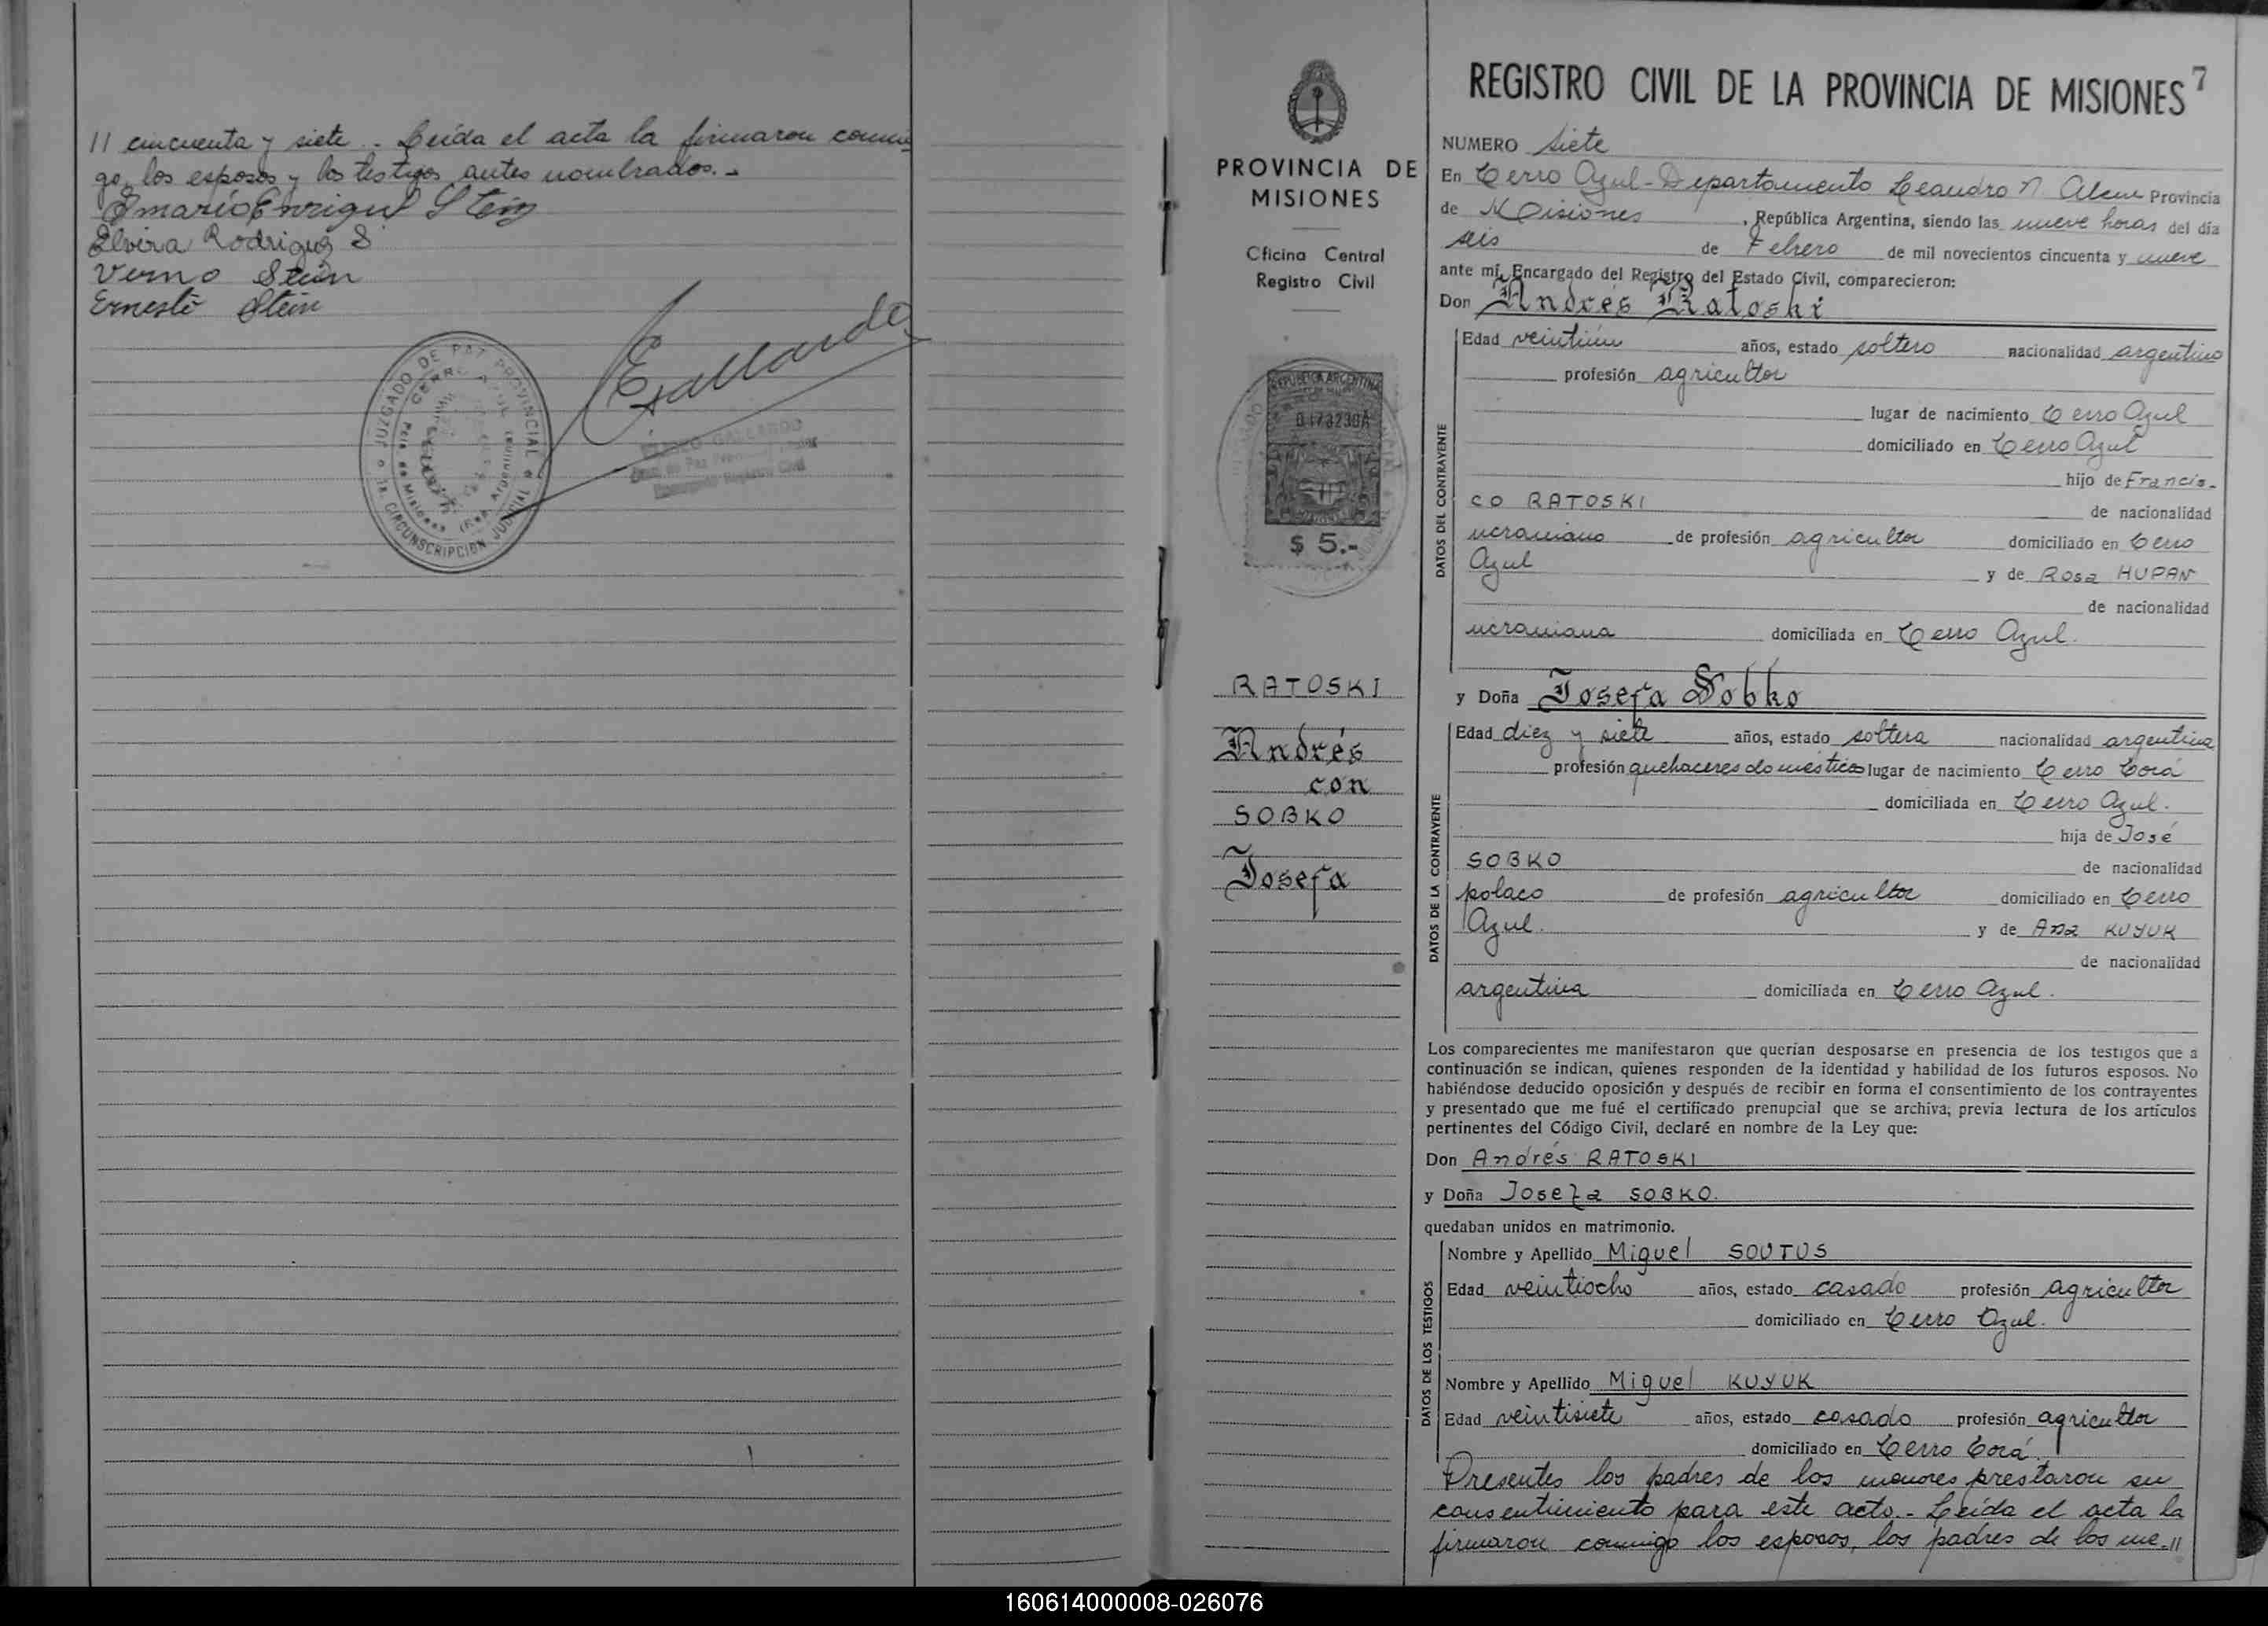 // cincuenta y siete.- Leída el acta la firmaron conmi
go, los esposos y los testigos antes nombrados.-
Emario Enrique Stein
Elvira Rodriguez S
Verno Stein
Ernesto Stein
JUZGADO DE PAZ PROVINCIAL
CERRO AZUL
Pcia. de Misiones (Rep. Argentina)
1a. CIRCUNSCRIPCION JUDICIAL
GALLARDO
Registro Civil
PROVINCIA DE
MISIONES
Oficina Central
Registro Civil
REPUBLICA ARGENTINA
$ 5.-
RATOSKI
Andrés
con
SOBKO
Josefa
REGISTRO CIVIL DE LA PROVINCIA DE MISIONES 7
NUMERO siete
En Cerro Azul - Departamento Leandro N. Alem Provincia
de Misiones, República Argentina, siendo las nueve horas del día
seis de Febrero de mil novecientos cincuenta y nueve
ante mí, Encargado del Registro del Estado Civil, comparecieron:
Don Andrés Ratoski
DATOS DEL CONTRAYENTE
Edad veintiún años, estado soltero nacionalidad argentino
profesión agricultor
lugar de nacimiento Cerro Azul
domiciliado en Cerro Azul
hijo de Francis-
co RATOSKI
de nacionalidad
ucraniano de profesión agricultor domiciliado en Cerro
Azul y de Rosa HUPAN
de nacionalidad
ucraniana domiciliada en Cerro Azul.
y Doña Josefa Sobko
DATOS DE LA CONTRAYENTE
Edad diez y siete años, estado soltera nacionalidad argentina
profesión quehaceres domésticos lugar de nacimiento Cerro Corá
domiciliada en Cerro Azul.
hija de José
SOBKO de nacionalidad
polaco de profesión agricultor domiciliado en Cerro
Azul. y de Ana KUYUK
de nacionalidad
argentina domiciliada en Cerro Azul.
Los comparecientes me manifestaron que querían desposarse en presencia de los testigos que a
continuación se indican, quienes responden de la identidad y habilidad de los futuros esposos. No
habiéndose deducido oposición y después de recibir en forma el consentimiento de los contrayentes
y presentado que me fué el certificado prenupcial que se archiva; previa lectura de los artículos
pertinentes del Código Civil, declaré en nombre de la Ley que:
Don Andrés RATOSKI
y Doña Josefa SOBKO.
quedaban unidos en matrimonio.
DATOS DE LOS TESTIGOS
Nombre y Apellido Miguel SOUTUS
Edad veintiocho años, estado casado profesión agricultor
domiciliado en Cerro Azul.
Nombre y Apellido Miguel KUYUK
Edad veintisiete años, estado casado profesión agricultor
domiciliado en Cerro Corá
Presentes los padres de los menores prestaron su
consentimiento para este acto.- Leída el acta la
firmaron conmigo los esposos, los padres de los me-//
160614000008-026076